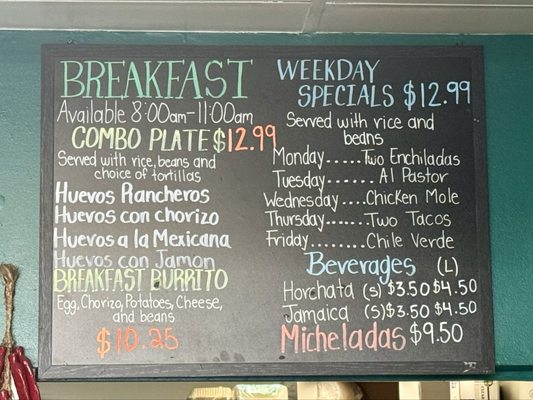 BREAKFAST
Available 8:00am-11:00am
COMBO PLATE $12.99
Served with rice, beans and
choice of tortillas
Huevos Rancheros
Huevos con chorizo
Huevos a la Mexicana
Huevos con Jamon
BREAKFAST BURRITO
Egg, Chorizo, Potatoes, Cheese,
and beans
$10.25
WEEKDAY
SPECIALS $12.99
Served with rice and
beans
Monday.....Two Enchiladas
Tuesday.......Al Pastor
Wednesday....Chicken Mole
Thursday......Two Tacos
Friday........Chile Verde
Beverages (L)
Horchata (s) $3.50 $4.50
Jamaica (s) $3.50 $4.50
Micheladas $9.50